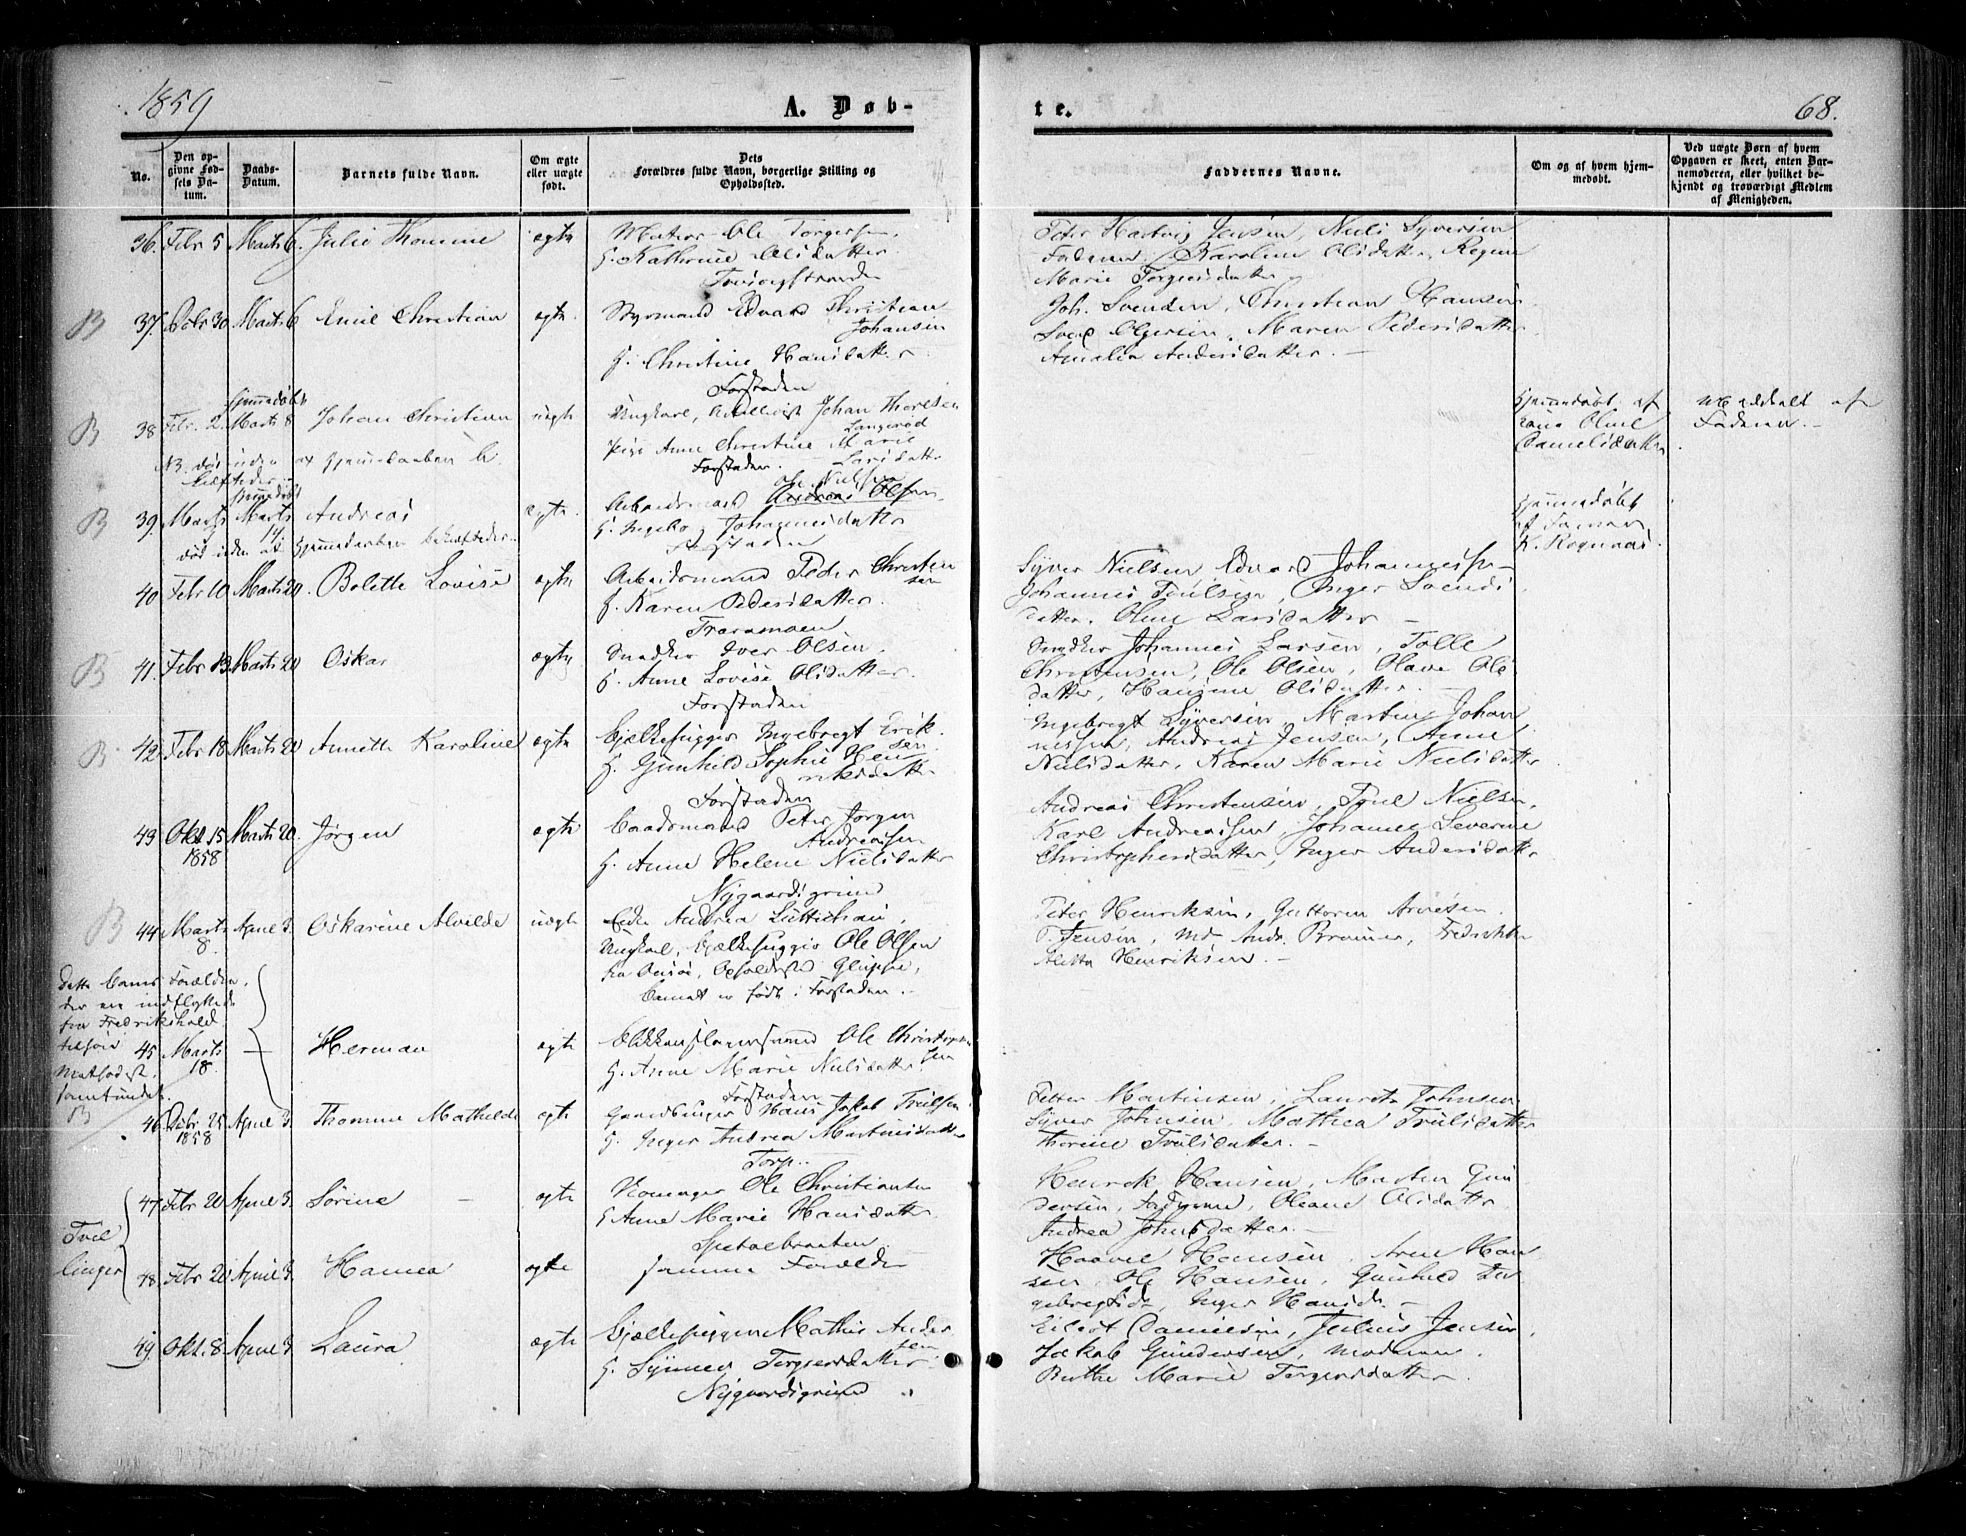 1859
A. Døb-
te.
68.
No.
Den op-
givne Fød-
sels Da-
tum.
Daabs-
Datum.
Barnets fulde Navn.
Om ægte
eller uægte
født.
Dets
Forældres fulde Navn, borgerlige Stilling og
Opholdssted.
Faddernes Navne.
Om og af hvem hjem-
medøbt.
Ved uægte Børn af hvem
Opgaven er skeet, enten Bar-
nemoderen, eller hvilket be-
kjendt og troværdigt Medlem
af Menigheden.
36. Febr 5 Marts 6. Julie Thomine ægte Ole Torgersen,
G. Kathrine Olsdatter
Peter Hartvig Jensen, Niels Syversen
Faderen, Karoline Olsdatter, Regine
Marie Torgersdatter
B 37. 30 Marts 6 Emil Christian ægte. Styrmand Edvard Christian
Johansen
G. Christine Hansdatter
Forstaden
Joh. Svendsen, Christian Hansen
Svend Olgersen, Maren Pedersdatter
Amalia Andersdatter. —
B 38 Febr. 2. Hjemmedøbt
Marts 8 Johan Christian uægte Ungkarl, Johan Thoresen
Langerød
Pige Anne Christine Marie
Larsdatter
Forstaden.
NB. død inden
Hjemmedøbt af
Danielsdatter
Meddelt af
Faderen. —
B 39. Marts Hjemmedøbt
Marts
14 Andreas ægte. Arbeidsmand Ole Nielsen
Andreas Olsen
G. Ingebor Johannesdatter
Forstaden
død inden at Hjemmedaaben bekræftedes.
Hjemmedøbt
af
K. Rognaas.
40 Febr 10 Marts 20. Bolette Lovise ægte Arbeidsmand Peder Christen
sen
G. Karen Pedersdatter.
Traramoen
Syver Nielsen Edvard Johannessen
Johannes Poulsen, Inger Svends
datter, Oline Larsdatter —
B 41. Febr 13. Marts 20 Oskar ægte Snedker Iver Olsen.
G. Anne Lovise Olsdatter.
Forstaden
Snedker Johannes Larsen, Tolle
Christensen, Ole Olsen, Olava Ols
datter, Hansine Olsdatter. —
B 42. Febr 18 Marts 20 Annette Karoline ægte Bjelkehugger Ingebregt Erik
sen
G. Gunhild Sophie Hen
riksdatter
Forstaden
Ingebregt Syversen, Martin Johan
nessen, Andreas Jensen, Anne
Nielsdatter, Karen Marie Nielsdatter
43 Okt 15
1858 Marts 20. Jørgen ægte Baadsmand Peter Jørgen
Andreassen
G. Anne Helene Nielsdatter
Nygaardsgrund
Andreas Christensen, Nielsen,
Karl Andreassen, Johanne Severine
Christophersdatter, Inger Andersdatter
B 44 Marts
8. April 3. Oskarine Alvilde uægte Andrea Lüttichau,
Ungkarl, Bjelkehugger Ole Olsen
fra Onsø, Opholdssted Gluppe,
Barnet er født i Forstaden. —
Peter Henriksen, Guttorm Arnesen
P. Jensen, Md. Andr. Brauner, Fredrikke
Aletta Henriksen. —
Dette Barns Forældre,
der ere indflyttede
fra Fredrikshald
tilhøre
Methodist-
samfundet.
45 Marts
18. — Herman ægte Ole Christophersen
G. Anne Marie Nielsdatter.
Forstaden
B 46. 25
1858 April 3. Thomine Mathilde ægte Gaardbruger Hans Jakob Trulsen
G. Inger Andrea Martinsdatter
Torp.
Petter Martinsen, Lauritz Johnsen
Syver Johnsen, Mathea Trulsdatter
Thorine Trulsdatter. —
Tvil
linger
47 Febr 20 April 3. Sørine — ægte Ole Christiansen
G Anne Marie Hansdatter
Spetalbraaten
Henrik Hansen, Martin Gun
dersen, Faderen, Oleane Olsdatter
Andrea Johnsdatter. —
48. Febr 20 April 3. Hanna ægte samme Forældre
Haavel Hansen, Arne Han
sen, Ole Hansen, Gunhild In
gebregtsdt., Inger Hansdt. —
49. Okt. 8 April 3 Laura ægte Bjelkehugger Mathis Ander
sen
G. Synnev Torgersdatter
Nygaardsgrund
Eilert Danielsen, Julius Jensen,
Jakob Gundersen, Moderen.
Berthe Marie Torgersdatter.